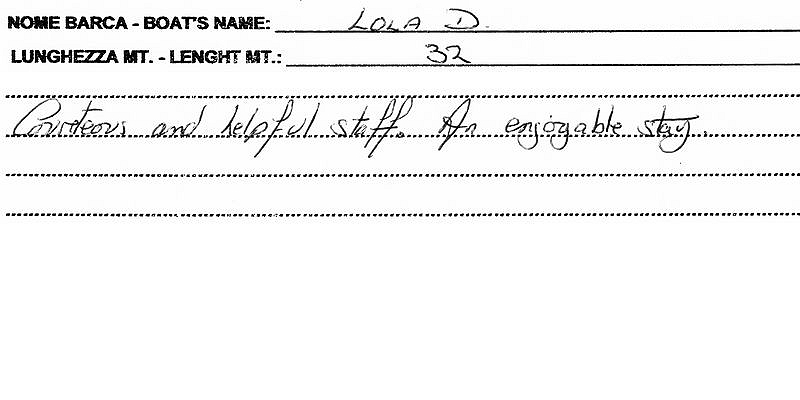 NOME BARCA - BOAT'S NAME: LOLA D.
LUNGHEZZA MT. - LENGHT MT.: 32
Courteous and helpful staff. An enjoyable stay.